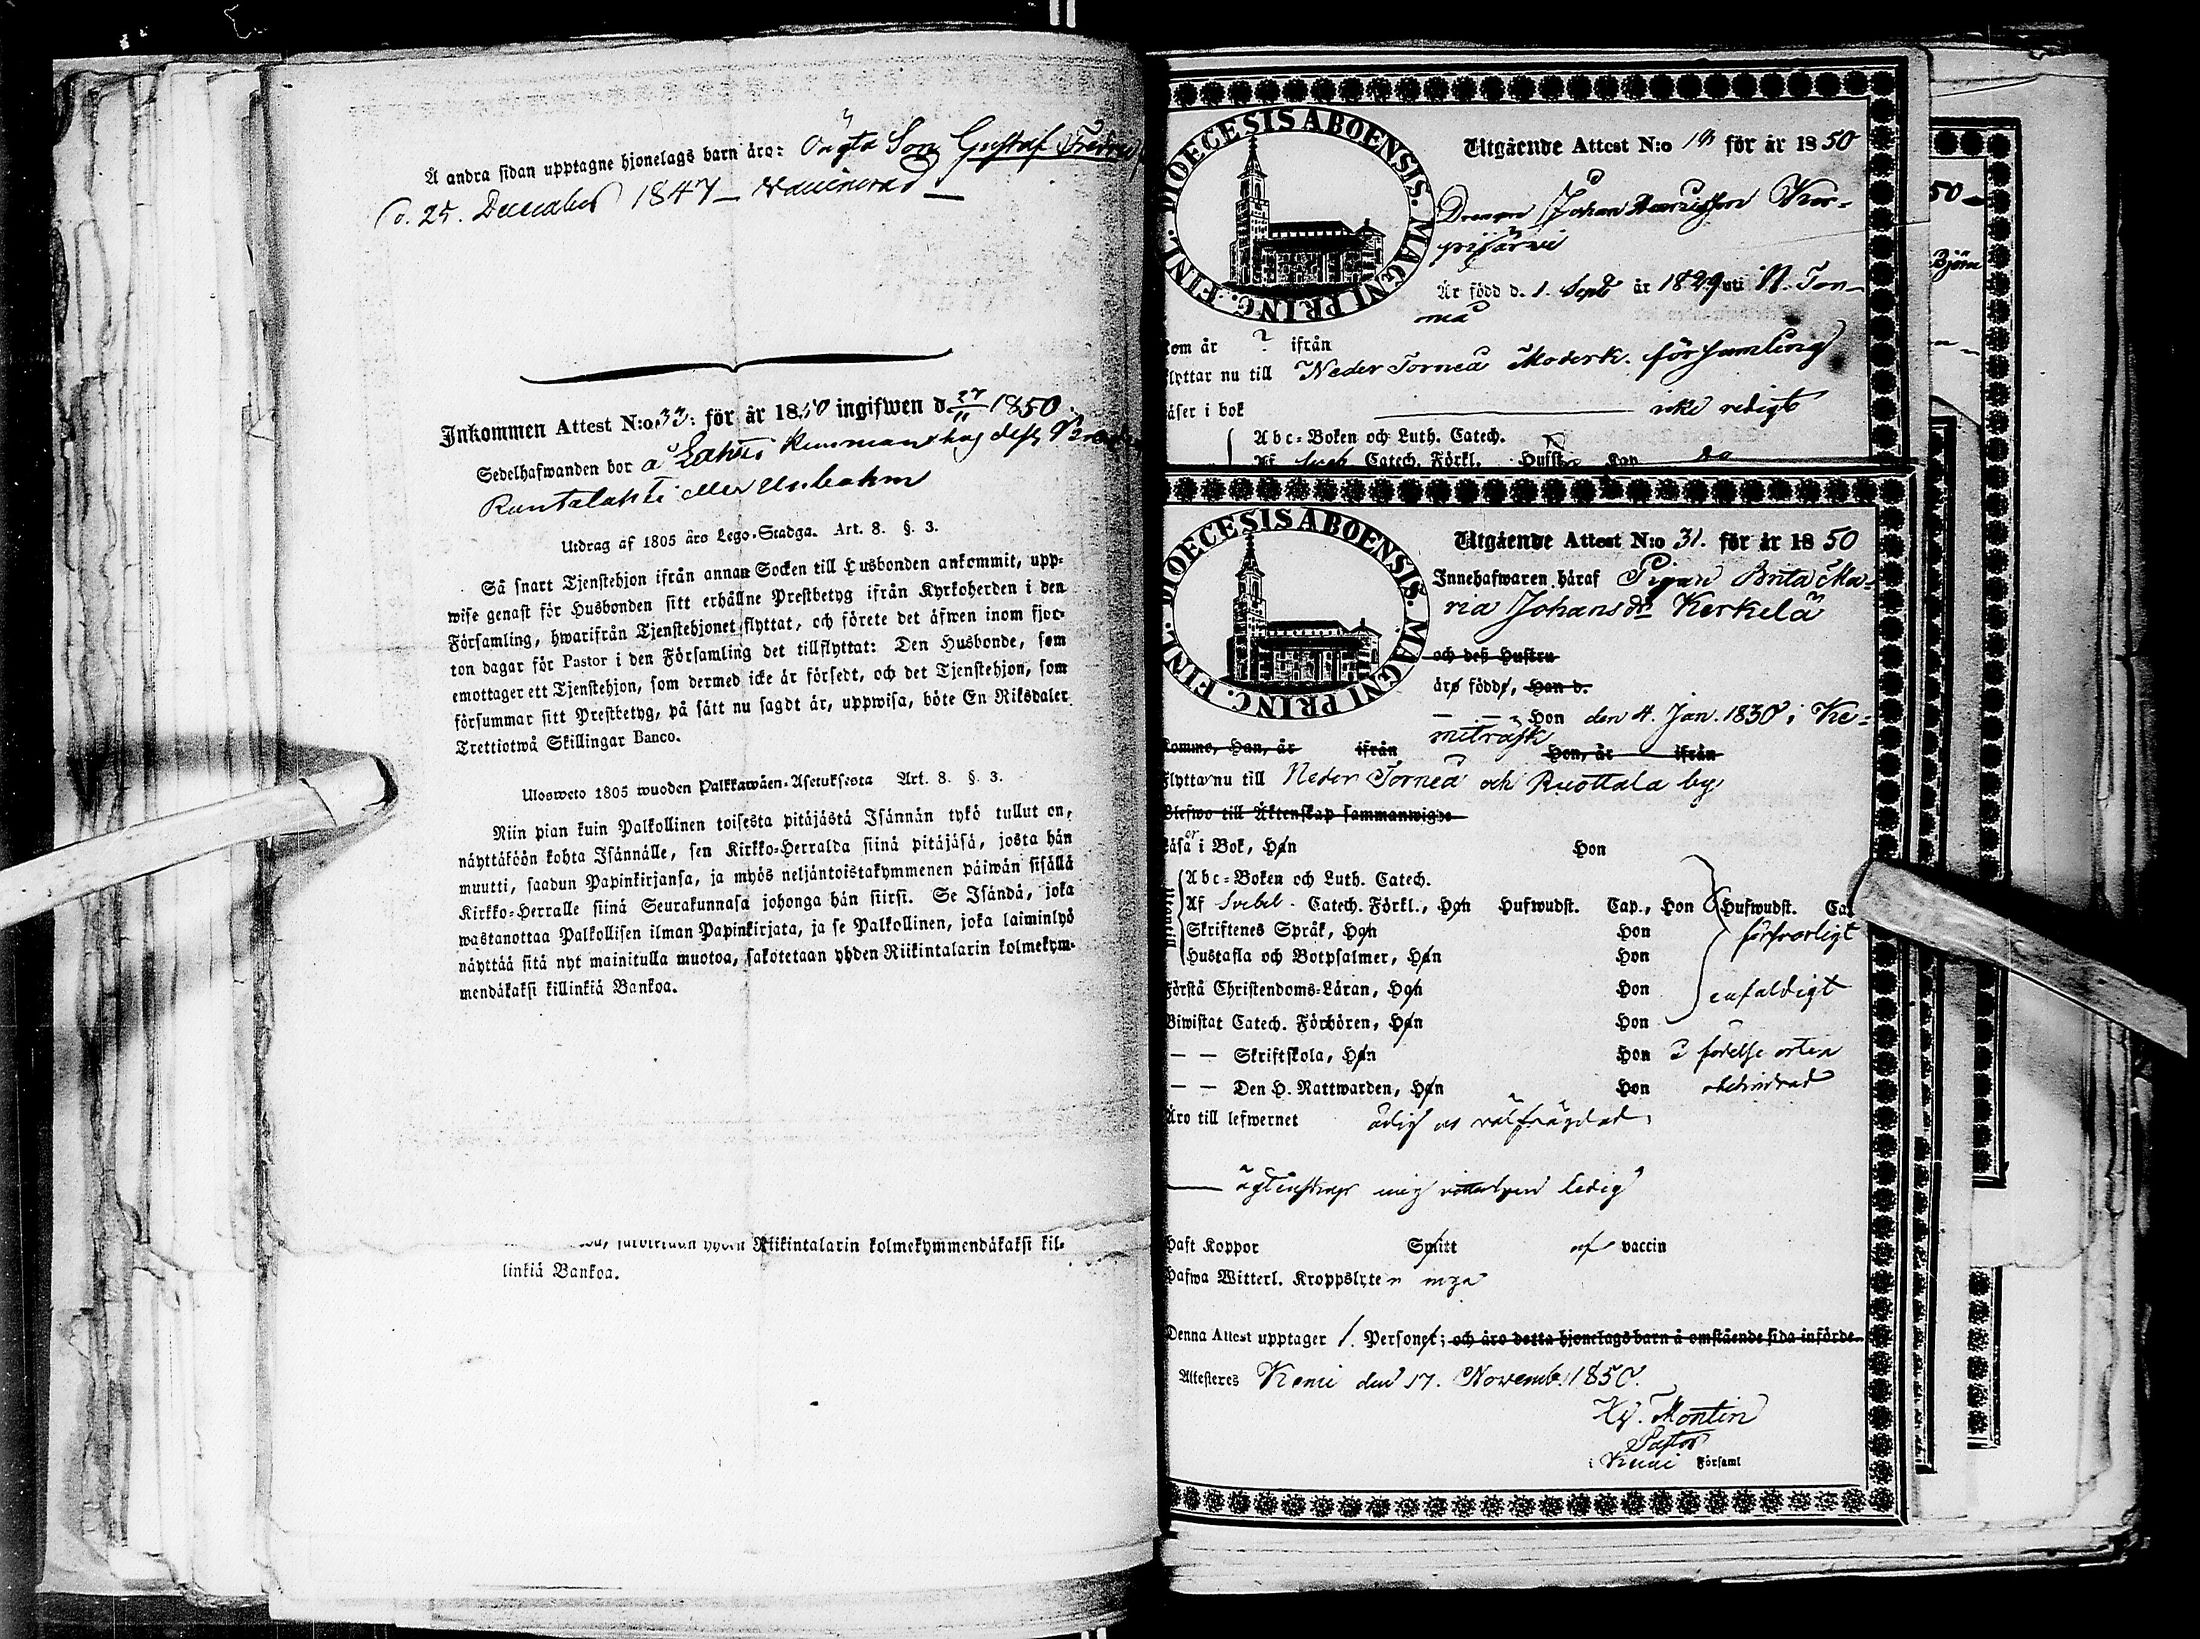 Å andra sidan upptagne hjonelags barn äro: Oägta Son Gustaf
d. 25. December 1847 — Vaccinerad —
Inkommen Attest N:o 33: för år 1850 ingifwen d. 27/11 1850
Sedelhafwanden bor å Lahti
Rantalahti eller
Utdrag af 1805 års Lego-Stadga. Art. 8. §. 3.
Så snart Tjenstehjon ifrån annan Socken till Husbonden ankommit, upp-
wise genast för Husbonden sitt erhållne Prestbetyg ifrån Kyrkoherden i den
Församling, hwarifrån Tjenstehjonet flyttat, och förete det äfwen inom fjor-
ton dagar för Pastor i den Församling det tillflyttat: Den Husbonde, som
emottager ett Tjenstehjon, som dermed icke är försedt, och det Tjenstehjon, som
försummar sitt Prestbetyg, på sätt nu sagdt är, uppwisa, böte En Riksdaler
Trettiotwå Skillingar Banco.
Ulosweto 1805 wuoden Palkkawäen-Asetuksesta Art. 8. §. 3.
Niin pian kuin Palkollinen toisesta pitäjästä Isännän tykö tullut on,
näyttäköön kohta Isännälle, sen Kirkko-Herralda siinä pitäjäsä, josta hän
muutti, saadun Papinkirjansa, ja myös neljäntoistakymmenen päiwän sisällä
Kirkko-Herralle siinä Seurakunnasa johonga hän siirsi. Se Isändä, joka
wastanottaa Palkollisen ilman Papinkirjata, ja se Palkollinen, joka laiminlyö
näyttää sitä nyt mainitulla muotoa, sakotetaan yhden Riikintalarin kolmekym-
mendäkaksi killinkiä Bankoa.
sakotetaan yhden Riikintalarin kolmekymmendäkaksi kil-
linkiä Bankoa.
DIOECESIS ABOENSIS. MAGNI PRINC. FINL.
Utgående Attest N:o 19 för år 1850
Drengen Johan Henricsson Kor-
pijärvi
Är född d. 1. Sept år 1829 uti N. Tor-
neå
kom år ? ifrån
flyttar nu till Neder Torneå Moderk. församling
läser i bok — icke redigt
Abc-Boken och Luth. Catech.
Af Sveb Catech. Förkl. Hufst. Kap do
50
Björn
DIOECESIS ABOENSIS. MAGNI PRINC. FINL.
Utgående Attest N:o 31. för år 1850
Innehafwaren häraf Pigan Brita Ma-
ria Johansdr Kerkelä
och deß Hustru
äro födde, Han d.
— — Hon den 4. Jan. 1830 i Ke-
miträsk
komne, Han, år ifrån Hon, år ifrån
Flyttar nu till Neder Torneå och Ruottala by
Blefwo till Äktenskap sammanwigde
Läsa i Bok, Han Hon
Utantill
Abc-Boken och Luth. Catech.
Af Svebel. Catech. Förkl., Han Hufwudst. Cap., Hon Hufwudst. Ca
Skriftenes Språk, Han Hon försvarligt
Hustafla och Botpsalmer, Han Hon
Förstå Christendoms-Läran, Han Hon enfaldigt
Biwistat Catech. Förhören, Han Hon
— — Skriftskola, Han Hon i födelse orten
— — Den H. Nattwarden, Han Hon obehindrad
Äro till lefwernet ärlig och välfrägdad,
— ägtenskap mig veterligen ledig
Haft Koppor Smitt af vaccin
Hafwa Witterl. Kroppslyten inga
Denna Attest upptager 1. Person; och äro detta hjonelags barn å omstående sida införde
Attesteres Kemi den 17. Novemb. 1850.
Montin
Pastor
i Kemi Församl